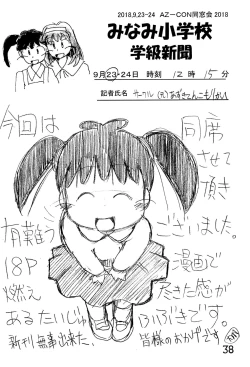 2018,9,23-24 AZーCON同窓会 2018
みなみ小学校
学級新聞
9月23・24日 時刻 12時 15分
記者氏名 サークル(元)あずきてんこもりかい
今回は同席
させて頂き
有難う
ございました。
18P
漫画で
燃え
つきた感が
あるたいじゅ
ふぶきです。
新刊無事出来た、
皆様のおかげです。
38